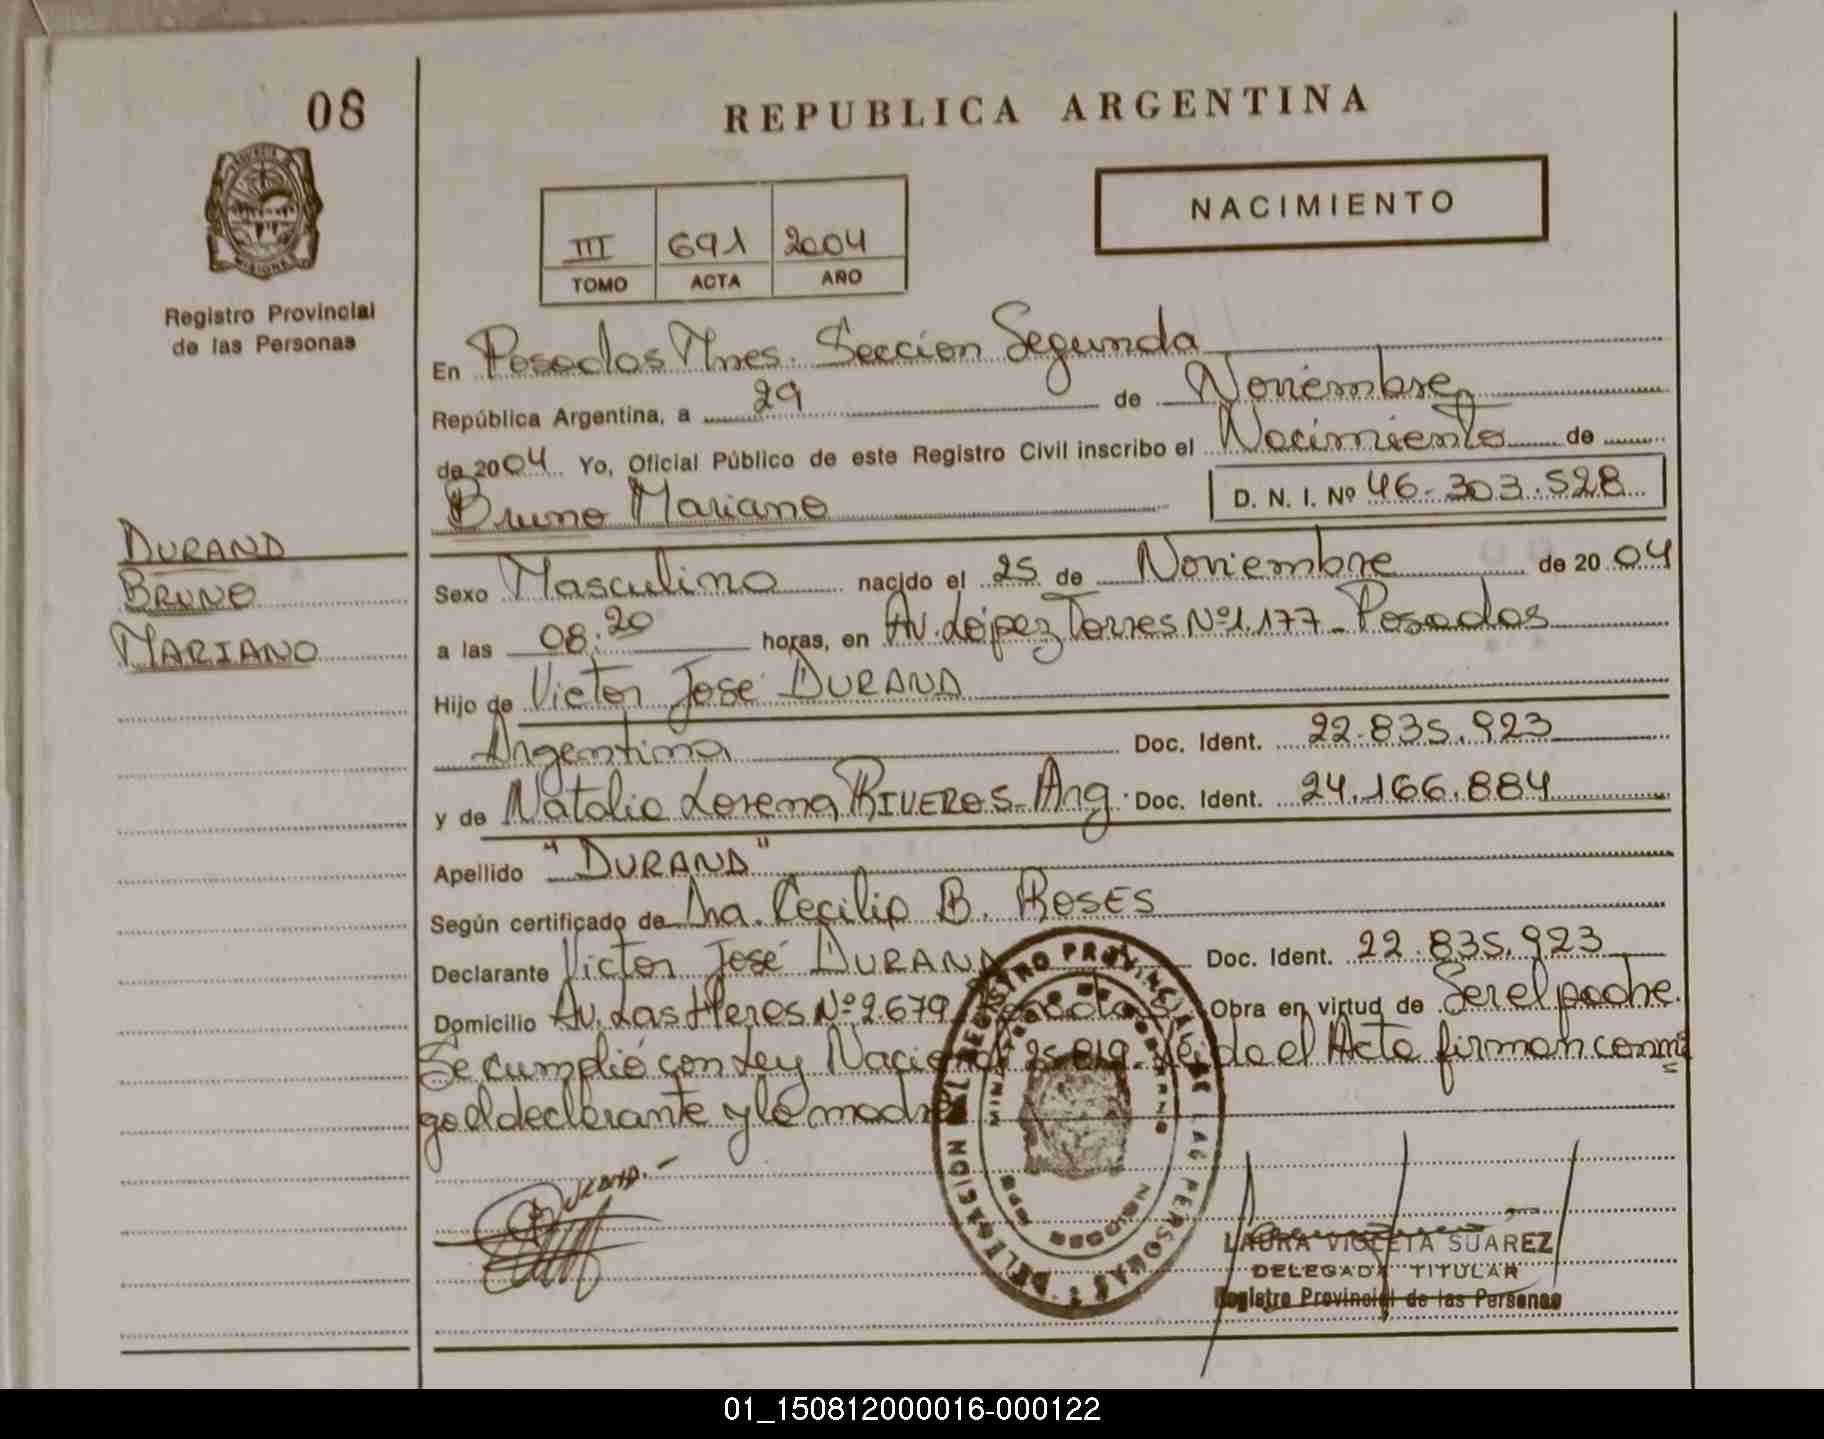 08
REPUBLICA ARGENTINA
NACIMIENTO
III 691 2004
TOMO ACTA AÑO
MISIONES
Registro Provincial
de las Personas
En Posadas Mnes. Sección Segunda
República Argentina, a 29 de Noviembre
de 2004 Yo, Oficial Público de este Registro Civil inscribo el Nacimiento de
Bruno Mariano D. N. I. Nº 46.303.528
DURAND
BRUNO
MARIANO
Sexo Masculino nacido el 25 de Noviembre de 2004
a las 08:20 horas, en Av. López Torres Nº 1.177 - Posadas
Hijo de Victor José DURAND
Argentina Doc. Ident. 22.835.923
y de Natalia Lorena RIVEROS - Arg. Doc. Ident. 24.166.884
Apellido "DURAND"
Según certificado de Dra. Cecilia B. ROSES
Declarante Victor José DURAND Doc. Ident. 22.835.923
Domicilio Av. Las Heras Nº 2.679 Posadas Obra en virtud de Ser el padre.
Se cumplió con Ley Nacional 25.819 - Leída el Acta firman conmi
go el declarante y la madre
DELEGACION DEL REGISTRO PROVINCIAL DE LAS PERSONAS
MINISTERIO DE GOBIERNO
MISIONES
Durand.-
LAURA VIOLETA SUAREZ
DELEGADA TITULAR
Registro Provincial de las Personas
01_150812000016-000122